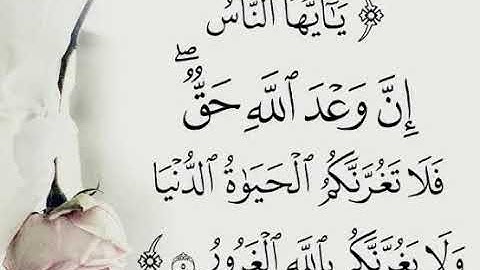 ﴿ يَـٰٓأَيُّهَا ٱلنَّاسُ
إِنَّ وَعْدَ ٱللَّهِ حَقٌّ ۖ
فَلَا تَغُرَّنَّكُمُ ٱلْحَيَوٰةُ ٱلدُّنْيَا
وَلَا يَغُرَّنَّكُم بِٱللَّهِ ٱلْغَرُورُ ۝٥ ﴾